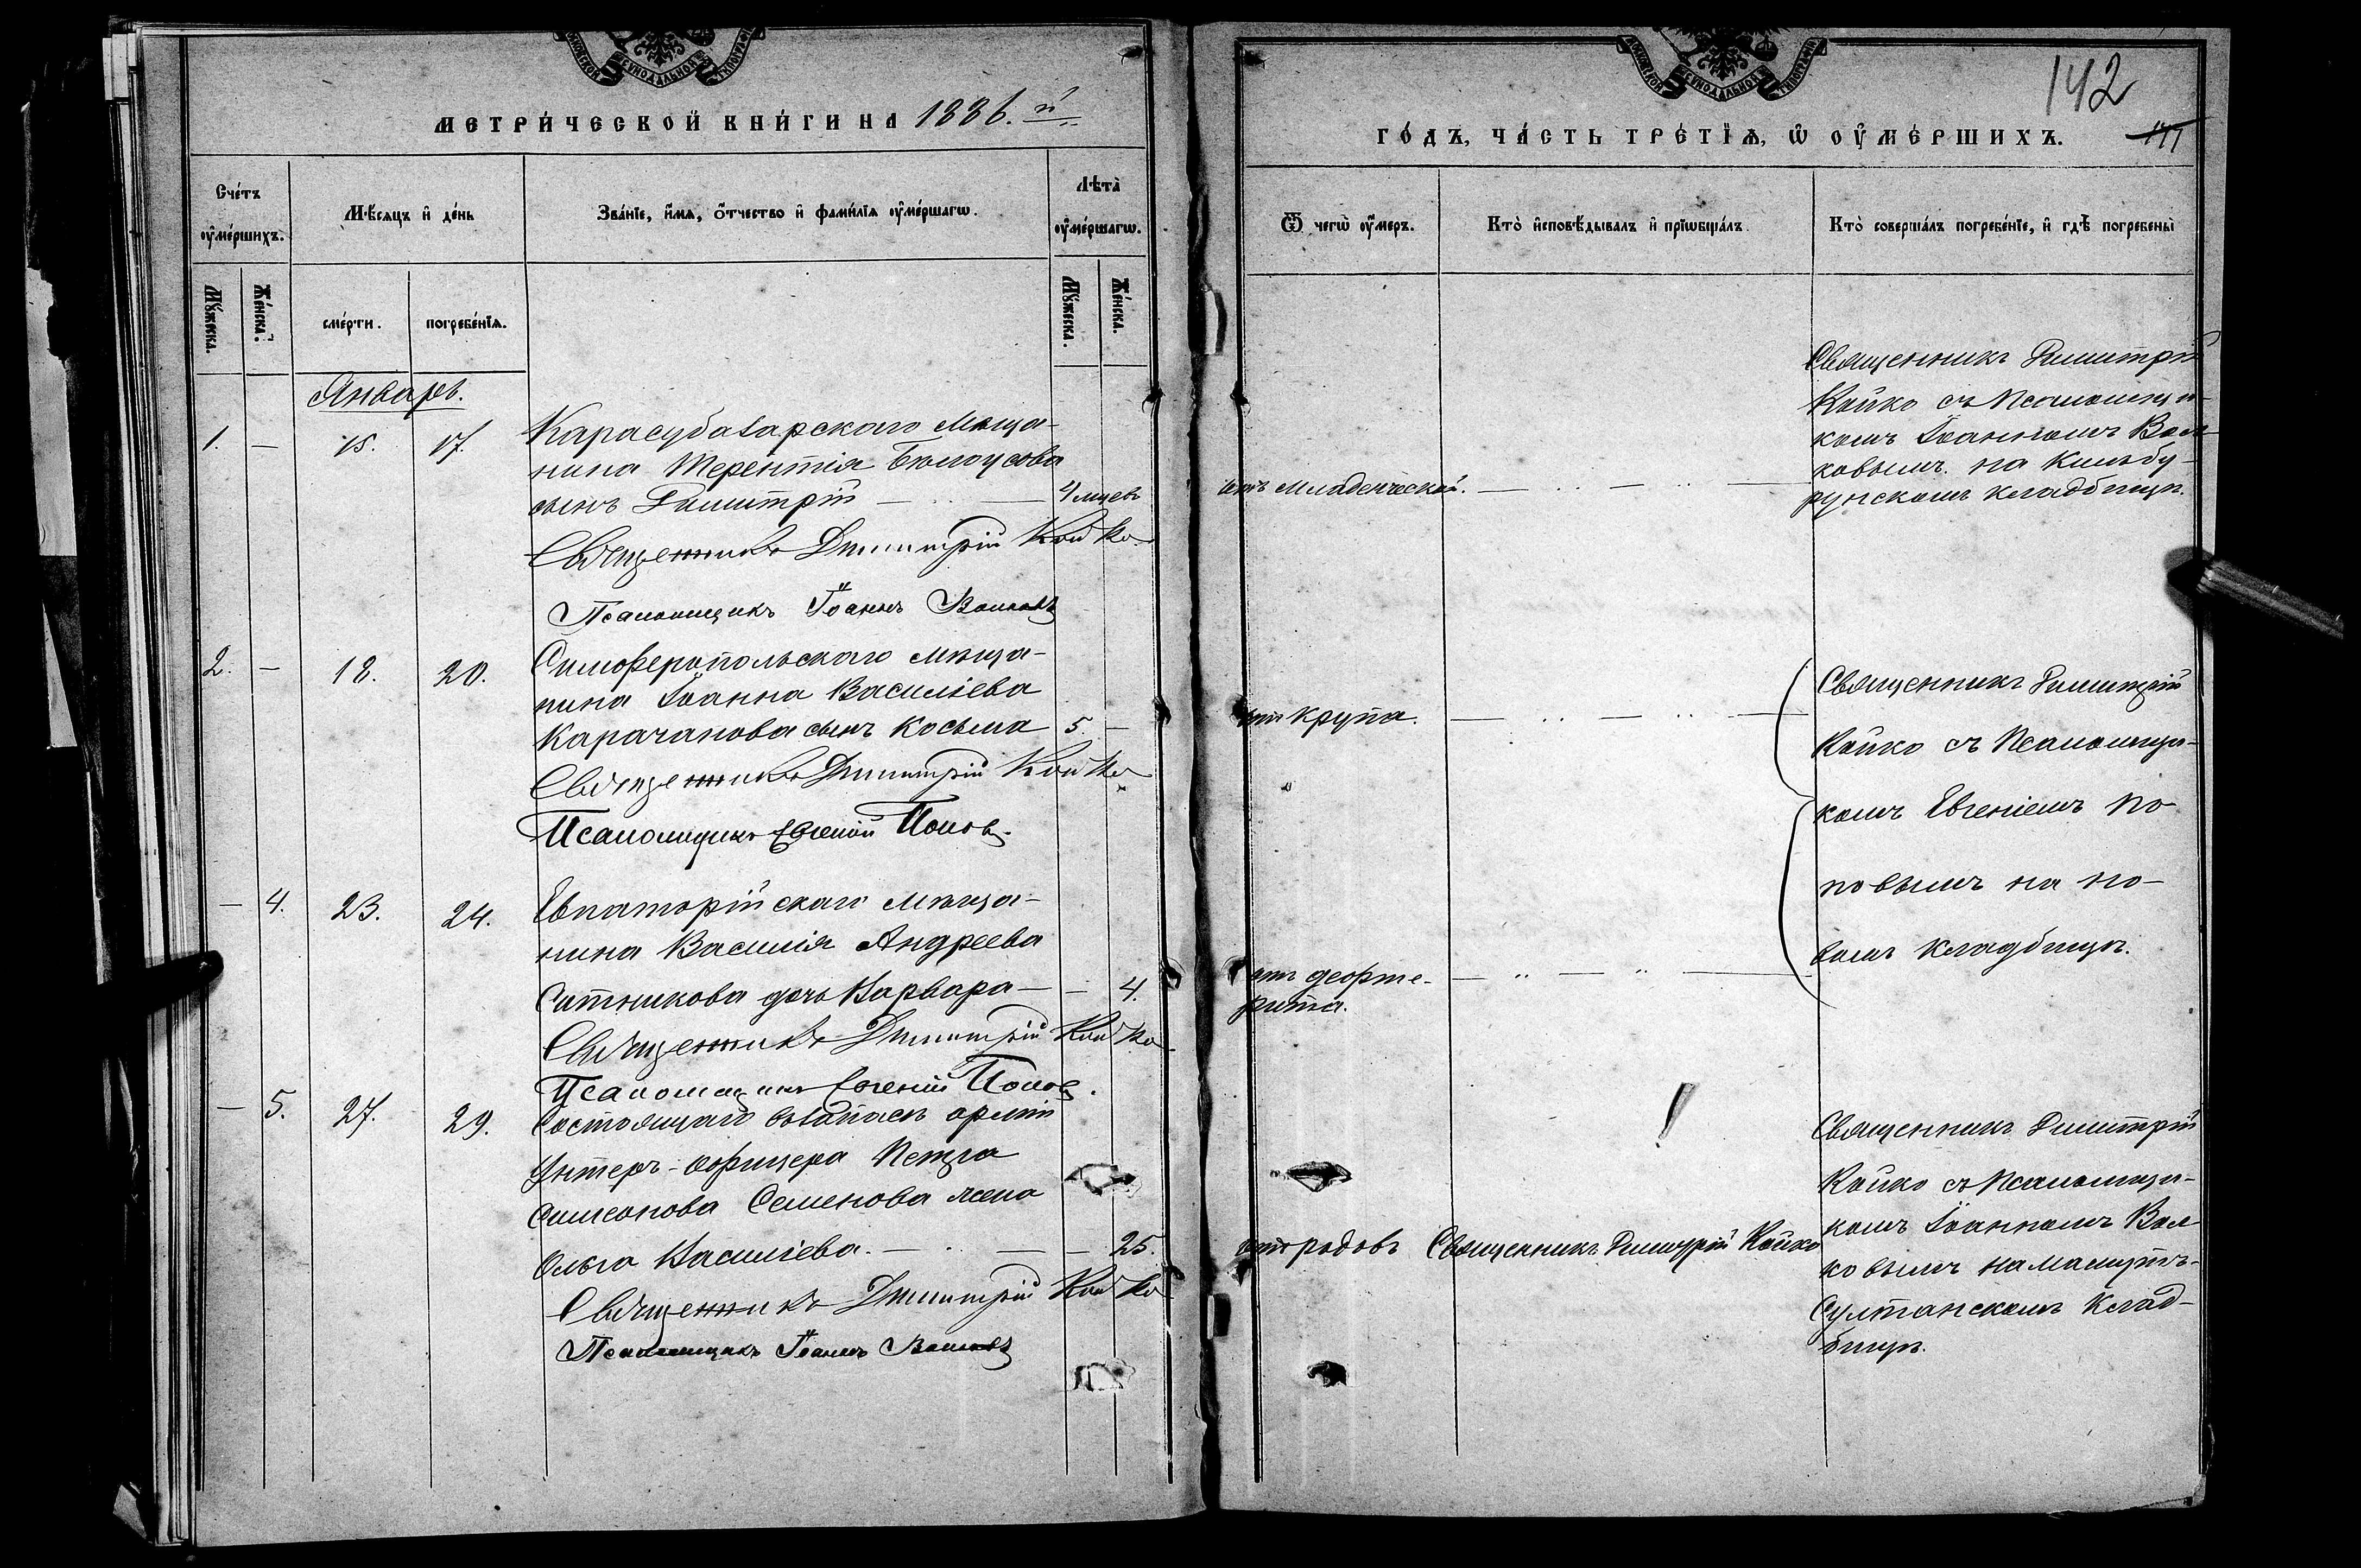 МЕТРИЧЕСКОЙ КНИГИ НА 1886.й
Счетъ умершихъ.
Мѣсяцъ и день
Званіе, имя, отчество и фамилія умершагѡ.
Лѣта умершагѡ.
Мужеска.
Женска.
смерти.
погребенія.
Мужеска.
Женска.
Январь.
1. — 15. 17. Карасубазарскаго мѣща-
нина Терентія Бѣлоусова
сынъ Димитрій — 4 мцевъ
Священникъ Димитрій Койко
Псаломщикъ Іоаннъ Волковъ
2. — 18. 20. Симферопольскаго мѣща-
нина Іоанна Василіева
Карачанова сынъ Косьма 5. —
Священникъ Димитрій Койко
Псаломщикъ Евгеній Поповъ.
— 4. 23. 24. Евпаторійскаго мѣща-
нина Василія Андреева
Ситникова дочь Варвара — — 4.
Священникъ Димитрій Койко
Псаломщикъ Евгеній Поповъ.
— 5. 27. 29. Состоящаго въ запасѣ арміи
Унтеръ-офицера Петра
Симеонова Семенова жена
Ольга Василіева. — — 25.
Священникъ Димитрій Койко
Псаломщикъ Іоаннъ Волковъ
142
141
ГОДЪ, ЧАСТЬ ТРЕТІѦ, Ѡ ОУМЕРШИХЪ.
Ѿ чегѡ умеръ.
Кто исповѣдывалъ и пріѡбщалъ.
Кто совершалъ погребеніе, и гдѣ погребены
Священникъ Димитрій
Койко съ Псаломщи-
комъ Іоанномъ Вол-
ковымъ на Кильбу-
рунскомъ кладбищѣ.
отъ младенческой. —
отъ крупа. —
Священникъ Димитрій
Койко съ Псаломщи-
комъ Евгеніемъ По-
повымъ на но-
вомъ кладбищѣ.
отъ дефте-
рита. —
Священникъ Димитрій
Койко съ Псаломщи-
комъ Іоанномъ Вол-
ковымъ на Мамутъ-
Султанскомъ клад-
бищѣ.
отъ родовъ Священникъ Димитрій Койко